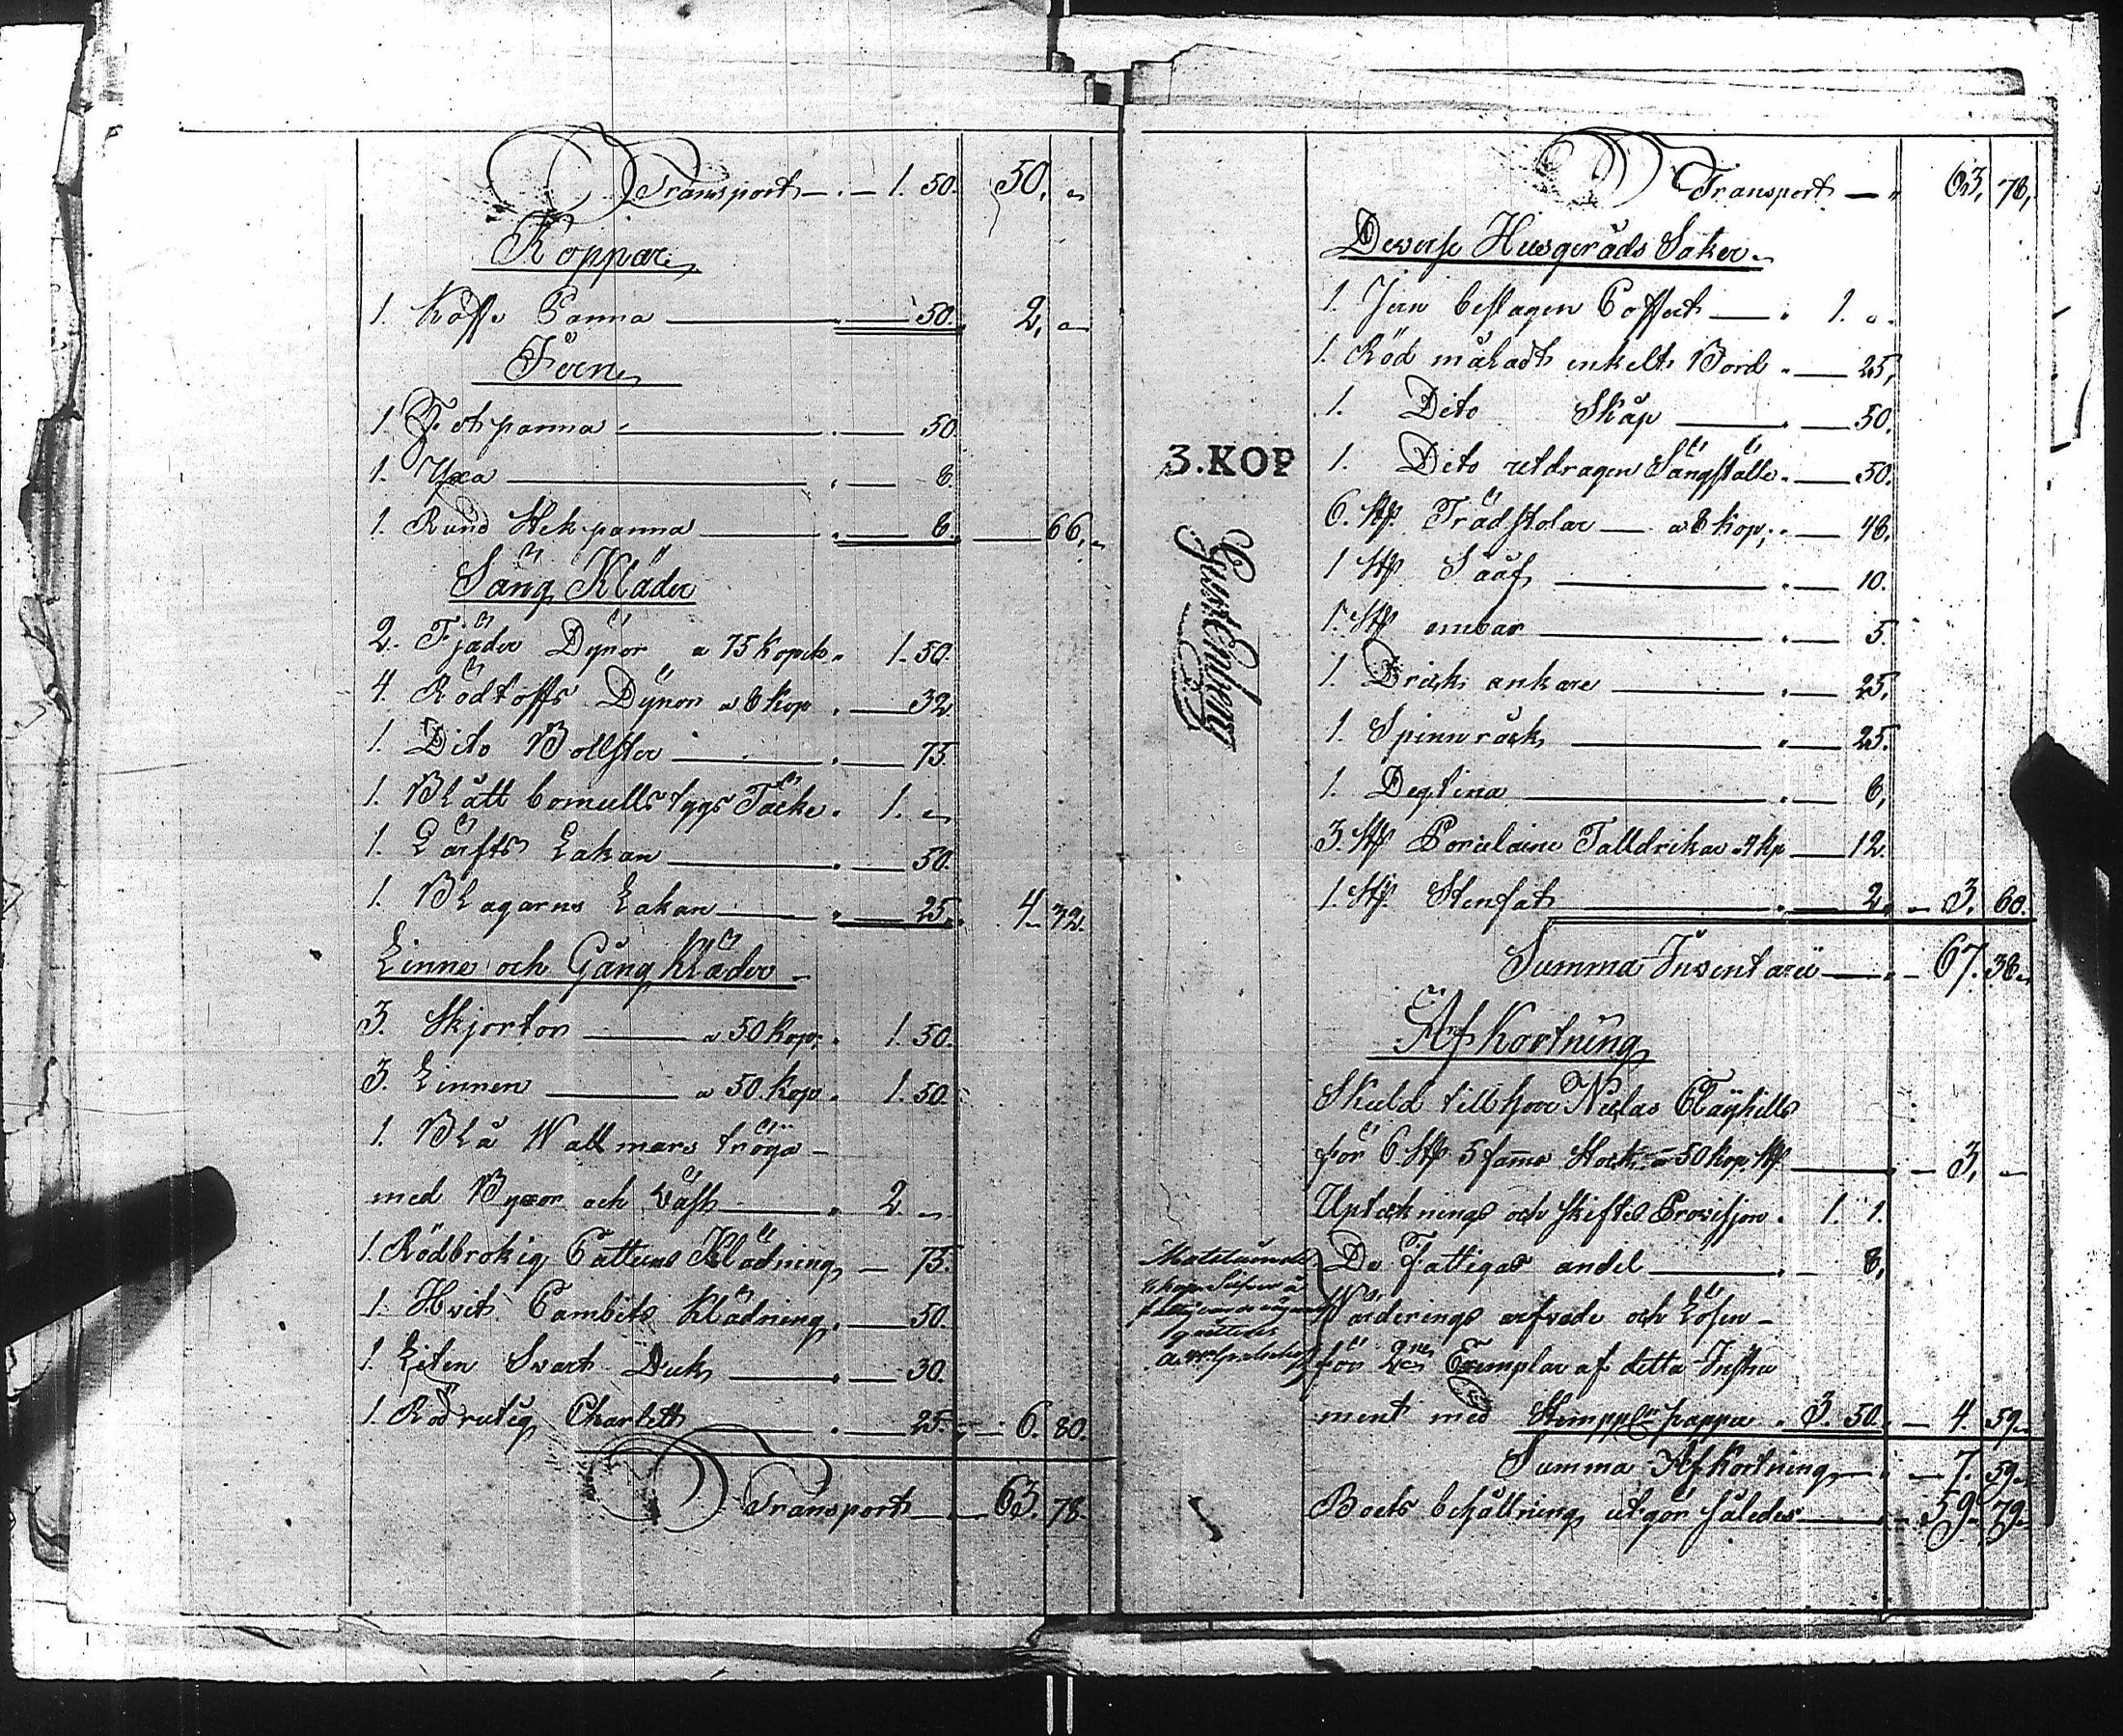 Transport — . — 1. 50. 50. "
Koppar
1. Kaffe Panna — 50. 2. "
Jern
1 Fot panna — . — 50.
1. Yxa — . — 8.
1. Rund Stek panna — . — 8. — 66. "
Säng Kläder
2. Fjäder Dynor a 75 Kopek . 1. 50.
4. Rödtofs Dynor a 8 Kop . — 32
1. Dito Bollster — . — 75.
1. Blått bomulls tygs Täcke . 1. "
1. Lärfts Lakan — . — 50.
1. Blagarns Lakan — . — 25. 4. 32.
Linne och Gång Kläder
3. Skjortor — a 50 Kop. . 1. 50.
3. Linnen — a 50. Kop . 1. 50.
1. Blå Wallmars tröja –
med Byxor och Wäst — . 2. "
1. Rödbrokig Cattuns Klädning — 75.
1. Hvit Cambiks Klädning . — 50.
1. Liten Svart Duk — . — 30.
1. Rödrutig Charlett — . — 25. — 6. 80.
Transport — 63. 78.
Transport — " 63, 78,
Deverse Husgeråds Saker
1. Jern beslagen Coffert — . 1. "
1. Röd måladt enkelt Bord . — 25,
1. Dito Skåp — . — 50.
1. Dito utdragen Sängställe . — 50.
6. St. Trädstolar — a 8 Kop; . — 48.
1 St. Sååf — . — 10.
1. St. embar — . — 5.
1. Dricks ankare — . — 25,
1. Spinnråck — . — 25.
1. Degtina — . — 8,
3. St. Porcelaine Talldrikar a 4 Kp — 12.
1. St. Stenfat — . — 2. — 3. 60.
Summa Inventarii — . — 67. 38.
Afkortning
Skuld till herr Niclas Clayhills
för 6 St 5 famns Stock a 50 Kop St — . — 3, —
Uptecknings och Skiftes Provisjon . 1. 1.
De Fattigas andel — . — 8,
Wärderings arfvode och Lösen –
för 2ne Exemplar af detta Instru
ment med Stemppel. papper . 3. 50. — 4. 59.
Summa Afkortning — . — 7. 59.
Boets behållning utgör således — . — 59. 79.
3.KOP